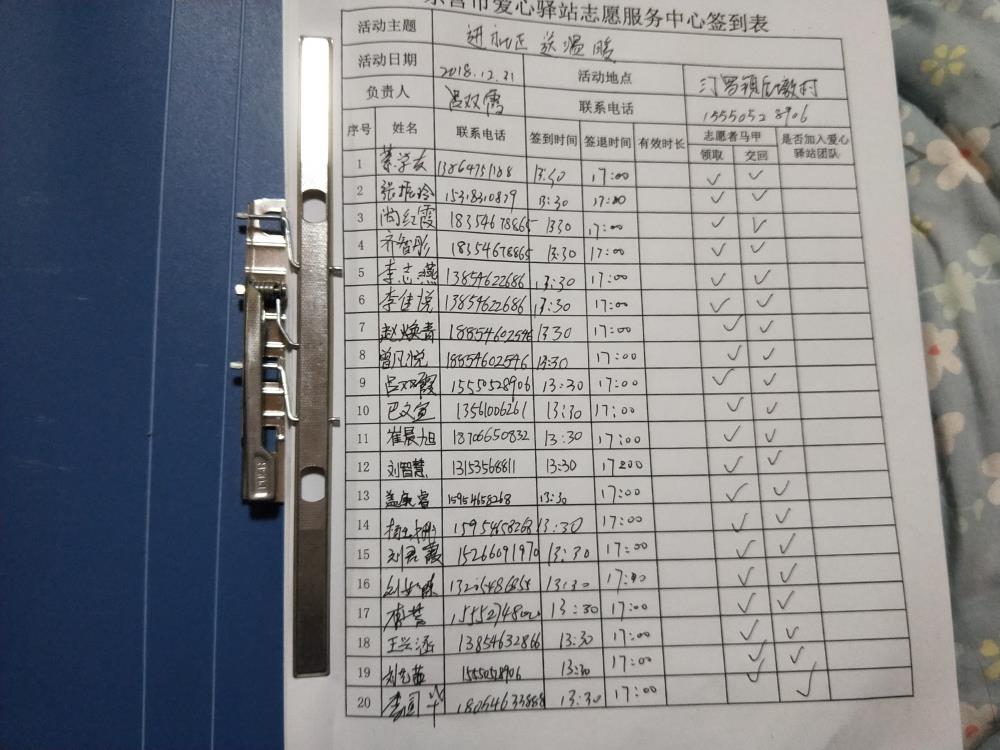 东营市爱心驿站志愿服务中心签到表
活动主题 进社区 送温暖
活动日期 2018.12.21 活动地点 汀罗镇后墩村
负责人 吕双霞 联系电话 15550528906
序号 姓名 联系电话 签到时间 签退时间 有效时长 志愿者马甲 是否加入爱心
领取 交回 驿站团队
1 13864751188 13:30 17:00 ✓ ✓
2 15318310879 13:30 17:00 ✓ ✓
3 尚红霞 18354678865 1330 17:00 ✓ ✓
4 齐智彤 18354678865 13:30 17:00 ✓ ✓
5 李志燕 13854622686 13:30 17:00 ✓ ✓
6 李佳悦 13854622686 13:30 17:00 ✓ ✓
7 赵焕青 18854602546 13:30 17:00 ✓ ✓
8 曾凡悦 18854602546 13:30 17:00 ✓ ✓
9 吕双霞 15550528906 13:30 17:00 ✓ ✓
10 巴文宣 13561006261 13:30 17:00 ✓ ✓
11 崔晨旭 18706650832 13:30 17:00 ✓ ✓
12 刘智慧 13153568811 13:30 17:00 ✓ ✓
13 15954658268 13:30 17:00 ✓ ✓
14 15954658268 13:30 17:00 ✓ ✓
15 刘君霞 15266091970 13:30 17:00 ✓ ✓
16 13:30 17:00 ✓ ✓
17 13:30 17:00 ✓ ✓
18 王兴涵 13854632866 13:30 17:00 ✓ ✓
19 15550528906 13:30 17:00 ✓ ✓
20 18054633888 13:30 17:00 ✓